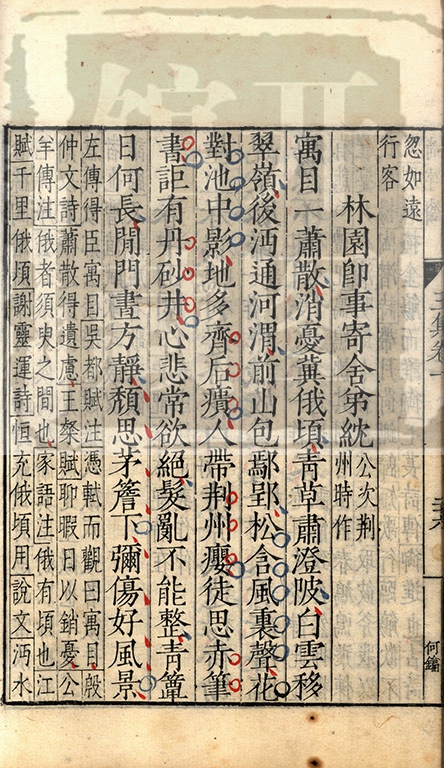 忽如遠
行客
林園卽事寄舍弟紞
公次荆
州時作
寓目一蕭散消憂冀俄頃青草肅澄陂白雲移
翠嶺後沔通河渭前山包鄢郢松含風裏聲花
對池中影地多齊后瘧人帶荆州癭徒思赤筆
書詎有丹砂井心悲常欲絕髮亂不能整青簟
日何長閒門晝方靜頹思茅簷下彌傷好風景
左傳得臣寓目吳都賦注憑軾而觀曰寓目殷
仲文詩蕭散得遺慮王粲賦聊暇日以銷憂公
羊傳注俄者須臾之間也家語注俄有頃也江
賦千里俄頃謝靈運詩恒充俄頃用說文沔水